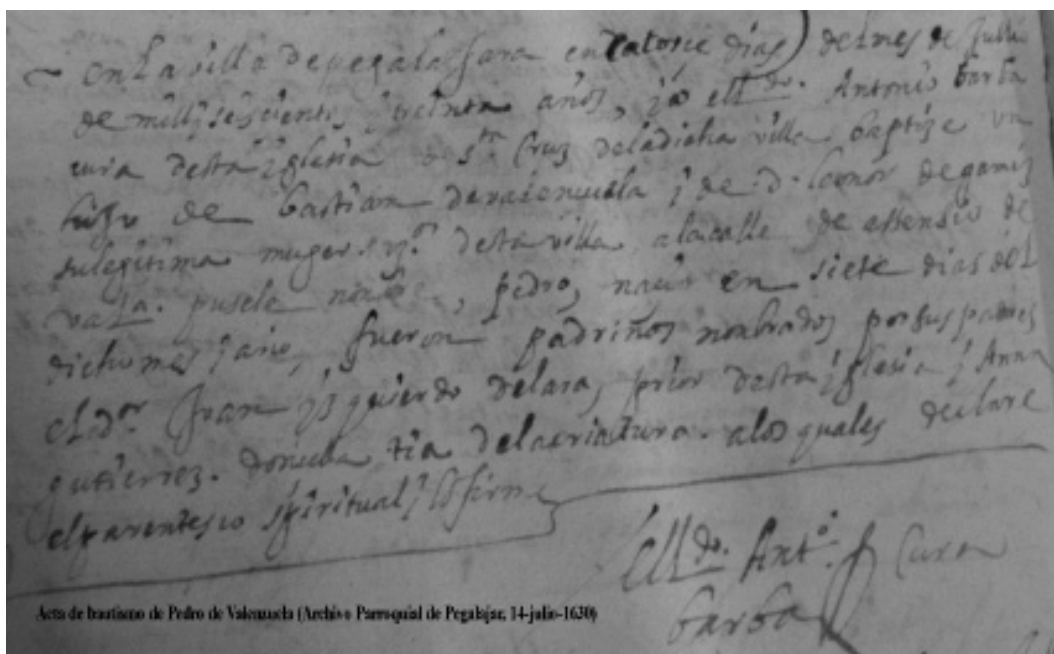 en La villa de pegalaJara en Catorce dias del mes de Jullio
de mill y seiscientos y treinta años, yo el Ldo. Antonio barba
cura desta yglesia de sta Cruz de la dicha villa baptize un
hijo de bastian de valençuela y de d. leonor de gamiz
su legitima muger. vos. desta villa a la calle de assensio de
pusele nonbre, pedro, nacio en siete dias del
dicho mes y año, fueron padrinos nonbrados por sus padres
el dor Juan yzquierdo de lara, prior desta yglesia y Anna
gutierrez. donçella tia de la criatura. a los quales declare
el parentesco spiritual y lo firme
El Ldo. Anto. Cura
barba
Acta de bautismo de Pedro de Valenzuela (Archivo Parroquial de Pegalajar, 14-julio-1630)